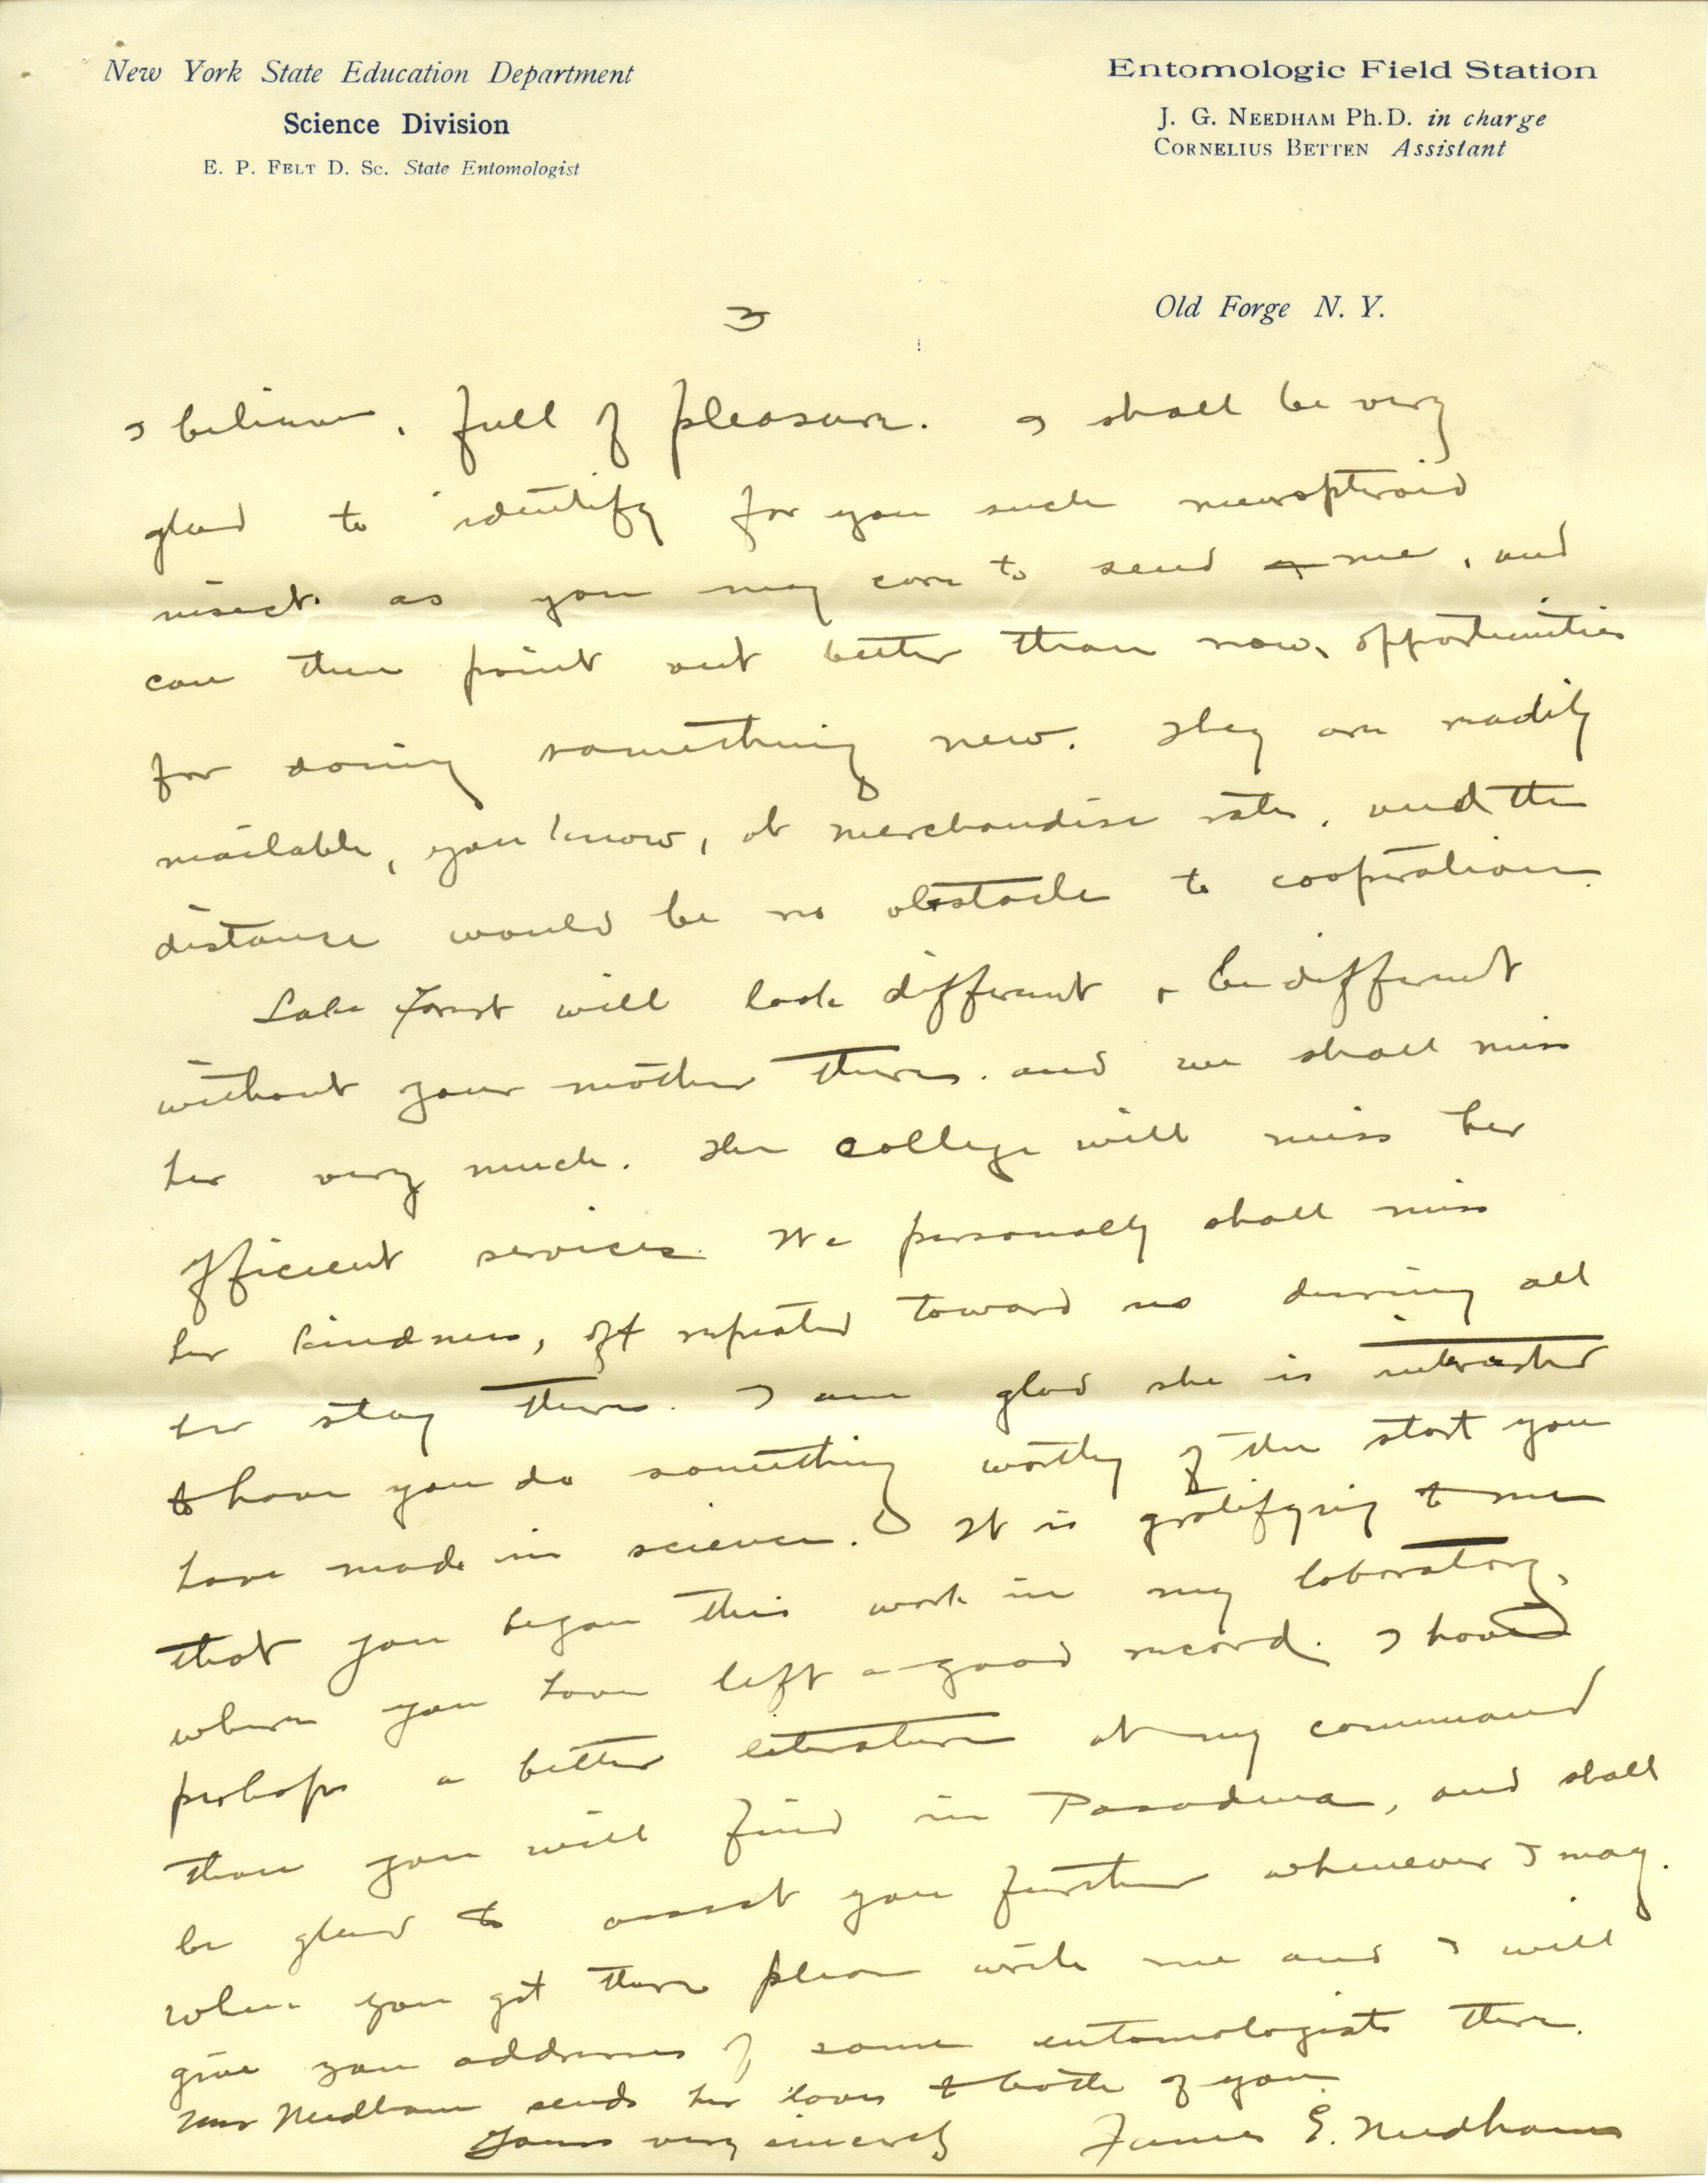 New York State Education Department
Science Division
E. P. FELT D. Sc. State Entomologist
Entomologic Field Station
J. G. NEEDHAM Ph.D. in charge
CORNELIUS BETTEN Assistant
Old Forge N. Y.
3
I believe, full of pleasure. I shall be very
glad to identify for you such neuropteroid
insects as you may care to send me, and
can then point out better than now, opportunities
for doing something new. They are readily
mailable, you know, at merchandise rates, and the
distance would be no obstacle to cooperation.
Lake Forest will look different & be different
without your mother there. and we shall miss
her very much. The college will miss her
efficient services. We personally shall miss
her kindness, oft repeated toward us during all
her stay there. I am glad she is interested
to have you do something worthy of the start you
have made in science. It is gratifying to me
that you began this work in my laboratory,
where you have left a good record. I have
perhaps a better literature at my command
than you will find in Pasadena, and shall
be glad to assist you further whenever I may.
When you get there please write me and I will
give you addresses of some entomologists there.
Mrs Needham sends her love to both of you.
Yours very sincerely James G. Needham